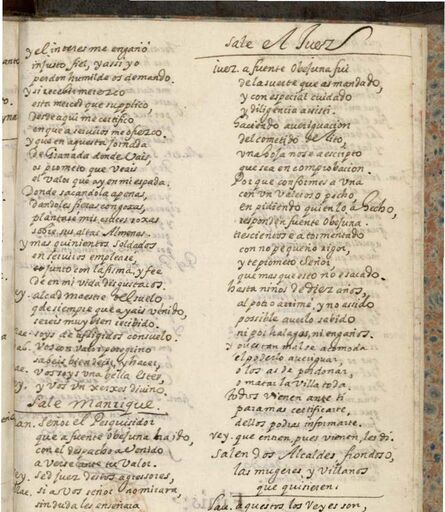 y el interes me engañó
injusto fiel, y assi yo
perdon humilde os demando.
Y si recibir merezco
esta merced que suplico,
desde aqui me certifico
en que a seruiros me ofrezco.
y que en aquesta jornada
de Granada donde vais,
os prometo que veais
el valor que ay en mi espada.
Donde sacandola apenas,
dandoles fieras congoxas,
plantare mis cruces roxas
sobre sus altas Almenas.
y mas quinientos soldados
en seruiros emplearé,
junto con la firma, y fee
de en mi vida disgustaros.
Rey. alçad Maestre del suelo
q̃ siempre que ayais venido,
sereis muy bien recibido.
Mae. soys de afligidos consuelo.
Vos con valor peregrino
sabeis bien dezir, y hazer,
Mae. vos soys una bella Ester,
y vos un xerxes divino.
Sale Manrique.
Man. Señor el Pesquisidor
que a fuente Obejuna ha ido,
con el despacho a venido
a verse ante tu valor.
Rey. Sed juez destos agressores,
Mae. si a vos señor no mirara,
sin duda les enseñara
Sale el Juez
Juez. a fuente Obejuna fui
de la suerte que as mandado,
y con especial cuidado
y diligencia assisti.
haciendo aueriguacion
del cometido delito,
una hoja no se a escripto
que sea en comprobacion.
Porque conformes a una
con un valeroso pecho
en pidiendo quien lo a hecho,
responden fuente Obejuna.
trescientos e atormentado
con no pequeño rigor,
y te prometo Señor
que mas que esto no e sacado.
hasta niños de diez años,
al potro arrimé, y no a sido
possible auerlo sabido
ni por halagos, ni engaños.
y pues tan mal se acomoda
el poderlo aueriguar,
o los as de perdonar,
o matar la villa toda.
todos vienen ante ti
para mas certificarte,
dellos podras informarte.
Rey. que entren, pues vienen, les di.
Salen dos Alcaldes frondoso,
las mugeres y villanos
que quisieren.
Lau. aquestos los Reyes son,